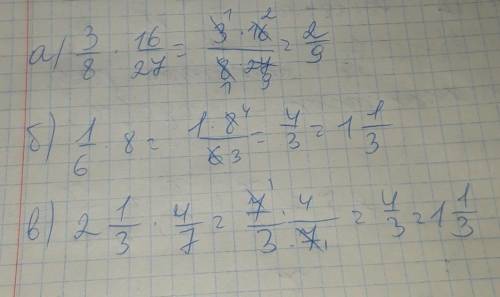 а) 3/8 · 16/27 = 3¹ · 16²/8₁ · 27₉ = 2/9
б) 1/6 · 8 = 1 · 8⁴/6₃ = 4/3 = 1 1/3
в) 2 1/3 · 4/7 = 7¹ · 4/3 · 7₁ = 4/3 = 1 1/3